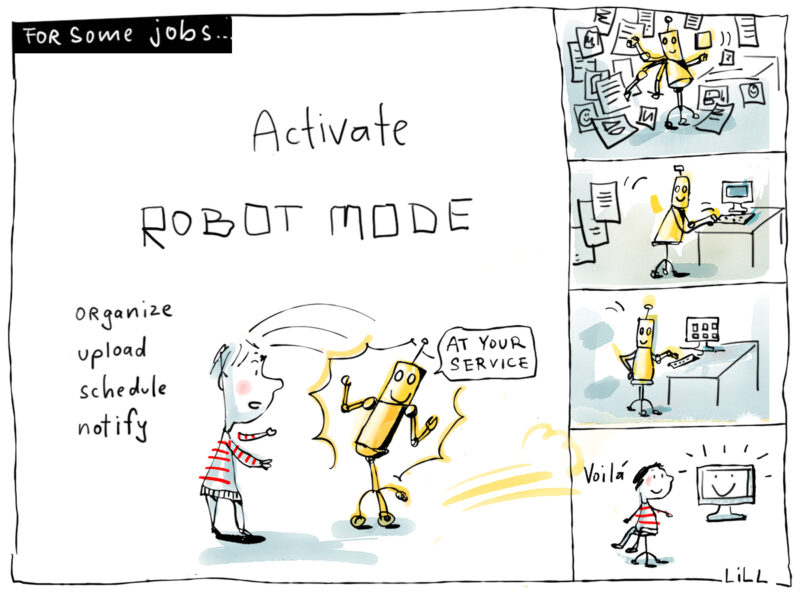 FOR SOME jobs...
Activate
ROBOT MODE
organize
upload
schedule
notify
AT YOUR
SERVICE
Voilá
LiLL